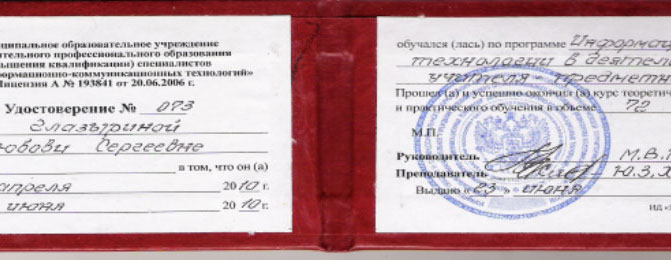 ципальное образовательное учреждение
ительного профессионального образования
вышения квалификации) специалистов
формационно-коммуникационных технологий»
Лицензия А № 193841 от 20.06.2006 г.
Удостоверение № 073
Глазыриной
юбови Сергеевне
в том, что он (а)
апреля 2010 г.
июня 2010 г.
обучался (лась) по программе Информац
технологии в деятель
учителя - предмет
Прошел (а) и успешно окончил (а) курс теорети
и практического обучения в объеме 72
М.П.
Руководитель М.В.
Преподаватель Ю.З.Х
Выдано « 23 » июня
ИД «